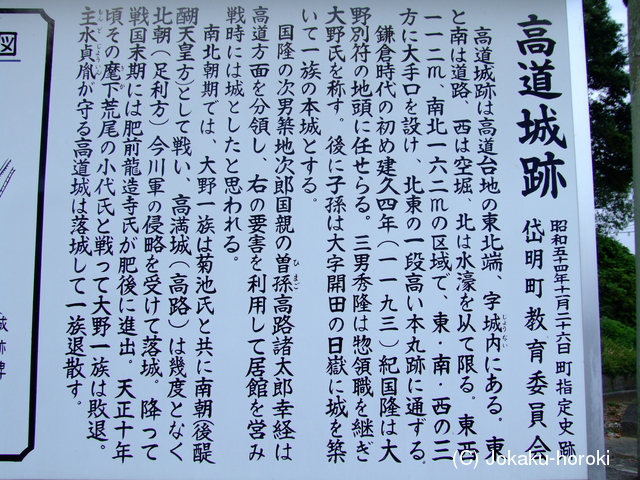 高道城跡
昭和五十四年十一月二十六日 町指定史跡
岱明町教育委員会
高道城跡は高道台地の東北端、字城内にある。東
じょうない
と南は道路、西は空堀、北は水濠を以て限る。東西
一一二m、南北一六二mの区域で、東・南・西の三
方に大手口を設け、北東の一段高い本丸跡に通ずる。
鎌倉時代の初め建久四年(一一九三)紀国隆は大
野別符の地頭に任せらる。三男秀隆は惣領職を継ぎ
大野氏を称す。後に子孫は大字開田の日嶽に城を築
いて一族の本城とする。
国隆の次男築地次郎国親の曽孫高路諸太郎幸経は
ひまご
高道方面を分領し、右の要害を利用して居館を営み
戦時には城としたと思われる。
南北朝期では、大野一族は菊池氏と共に南朝(後醍
醐天皇方)として戦い、高満城(高路)は幾度となく
北朝(足利方)今川軍の侵略を受けて落城。降って
戦国末期には肥前龍造寺氏が肥後に進出。天正十年
頃その麾下荒尾の小代氏と戦って大野一族は敗退。
主水貞胤が守る高道城は落城して一族退散す。
図
城跡碑
(C) Jokaku-horoki